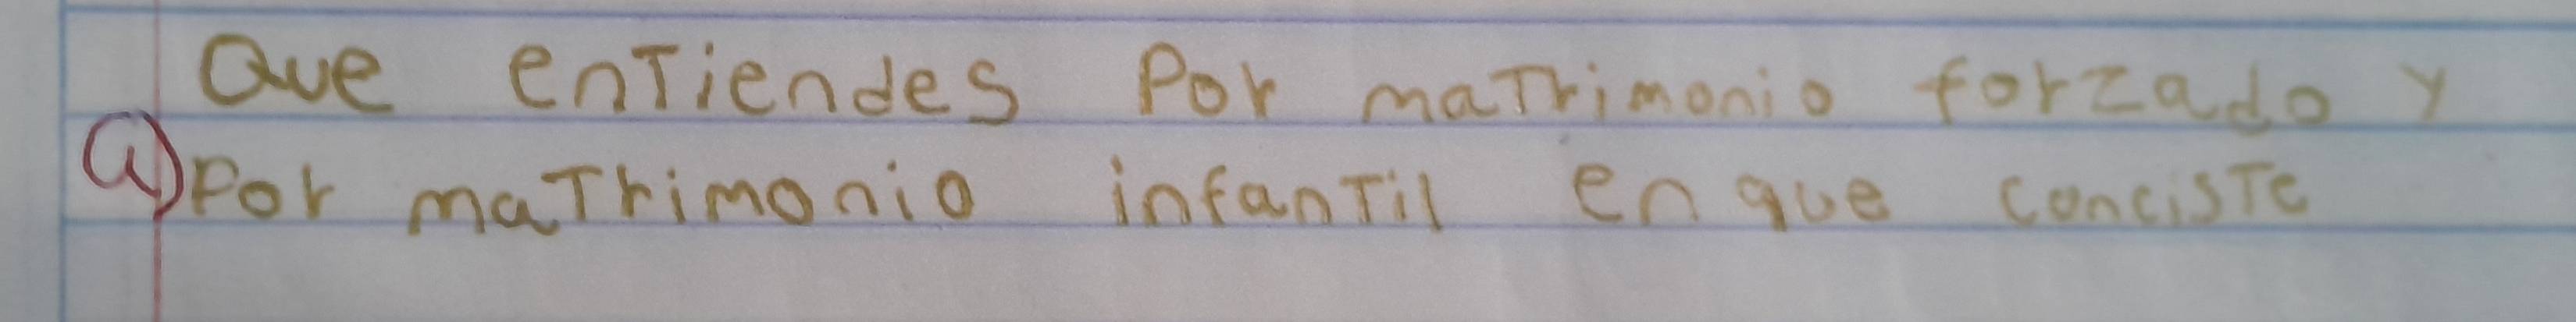 Que entiendes Por matrimonio forzado y
a) Por matrimonio infantil en que conciste